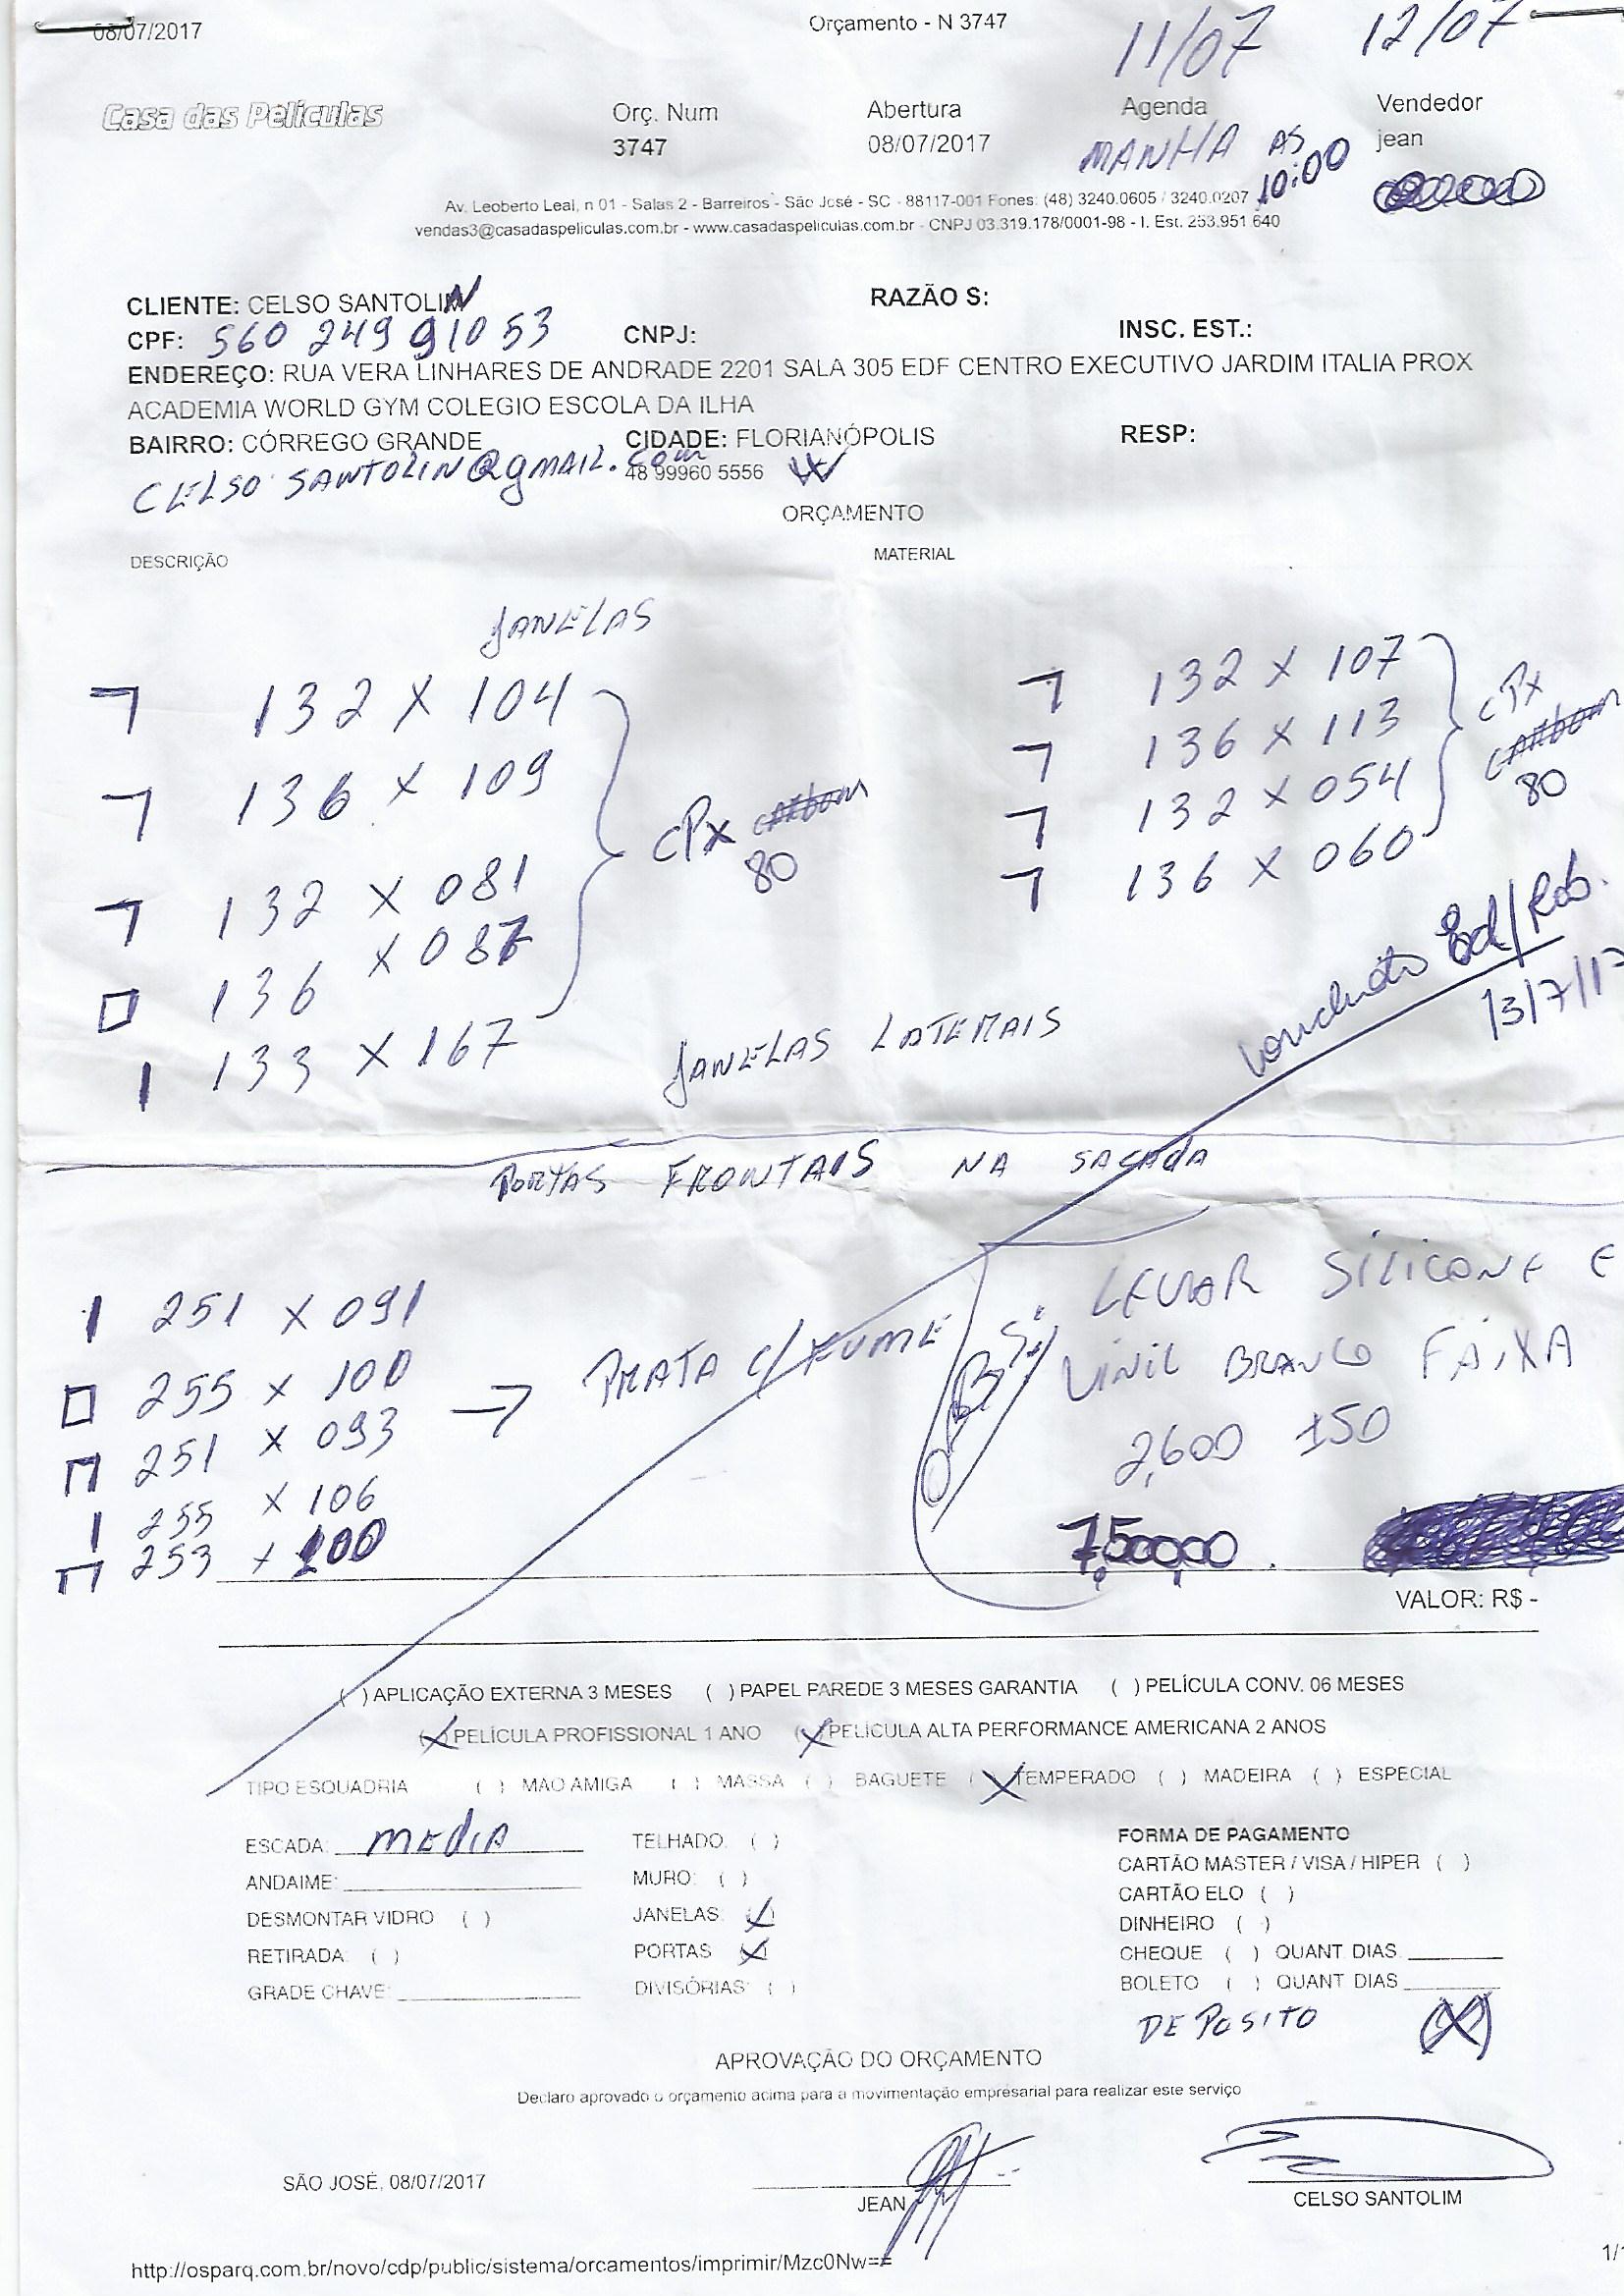 08/07/2017 Orçamento - N 3747 11/07 12/07
Casa das Películas Orç. Num Abertura Agenda Vendedor
3747 08/07/2017 MANHA AS 10:00 jean
Av. Leoberto Leal, n 01 - Salas 2 - Barreiros - São José - SC - 88117-001 Fones: (48) 3240.0605 / 3240.0207
vendas3@casadaspeliculas.com.br - www.casadaspeliculas.com.br - CNPJ 03.319.178/0001-98 - I. Est. 253.951.640
CLIENTE: CELSO SANTOLIN RAZÃO S:
CPF: 560 249 910 53 CNPJ: INSC. EST.:
ENDEREÇO: RUA VERA LINHARES DE ANDRADE 2201 SALA 305 EDF CENTRO EXECUTIVO JARDIM ITALIA PROX
ACADEMIA WORLD GYM COLEGIO ESCOLA DA ILHA
BAIRRO: CÓRREGO GRANDE CIDADE: FLORIANÓPOLIS RESP:
CELSO SANTOLIN@gmail.com 48 99960 5556
ORÇAMENTO
DESCRIÇÃO MATERIAL
JANELAS
132 X 104 132 X 107
136 X 109 136 X 113
CPX carbon 80 CPX carbon 80
132 X 081 132 X 054
136 X 087 136 X 060
133 X 167 JANELAS LATERAIS
concluido Ed/Rob.
13/7/17
PORTAS FRONTAIS NA SACADA
251 X 091 OBS: LEVAR SILICONE E
255 X 100 → PRATA C/ FUME VINIL BRANCO FAIXA
251 X 093 2,600 150
255 X 106
253 X 100 7,500,00
VALOR: R$ -
( ) APLICAÇÃO EXTERNA 3 MESES ( ) PAPEL PAREDE 3 MESES GARANTIA ( ) PELÍCULA CONV. 06 MESES
(X) PELÍCULA PROFISSIONAL 1 ANO (X) PELÍCULA ALTA PERFORMANCE AMERICANA 2 ANOS
TIPO ESQUADRIA ( ) MAO AMIGA ( ) MASSA ( ) BAGUETE (X) TEMPERADO ( ) MADEIRA ( ) ESPECIAL
ESCADA: MEDIA TELHADO: ( ) FORMA DE PAGAMENTO
ANDAIME: MURO: ( ) CARTÃO MASTER / VISA / HIPER ( )
DESMONTAR VIDRO ( ) JANELAS: (X) CARTÃO ELO ( )
RETIRADA: ( ) PORTAS (X) DINHEIRO ( )
GRADE CHAVE: DIVISÓRIAS: ( ) CHEQUE ( ) QUANT DIAS
BOLETO ( ) QUANT DIAS
DEPOSITO (X)
APROVAÇÃO DO ORÇAMENTO
Declaro aprovado o orçamento acima para a movimentação empresarial para realizar este serviço
SÃO JOSÉ, 08/07/2017 JEAN CELSO SANTOLIM
http://osparq.com.br/novo/cdp/public/sistema/orcamentos/imprimir/Mzc0Nw==